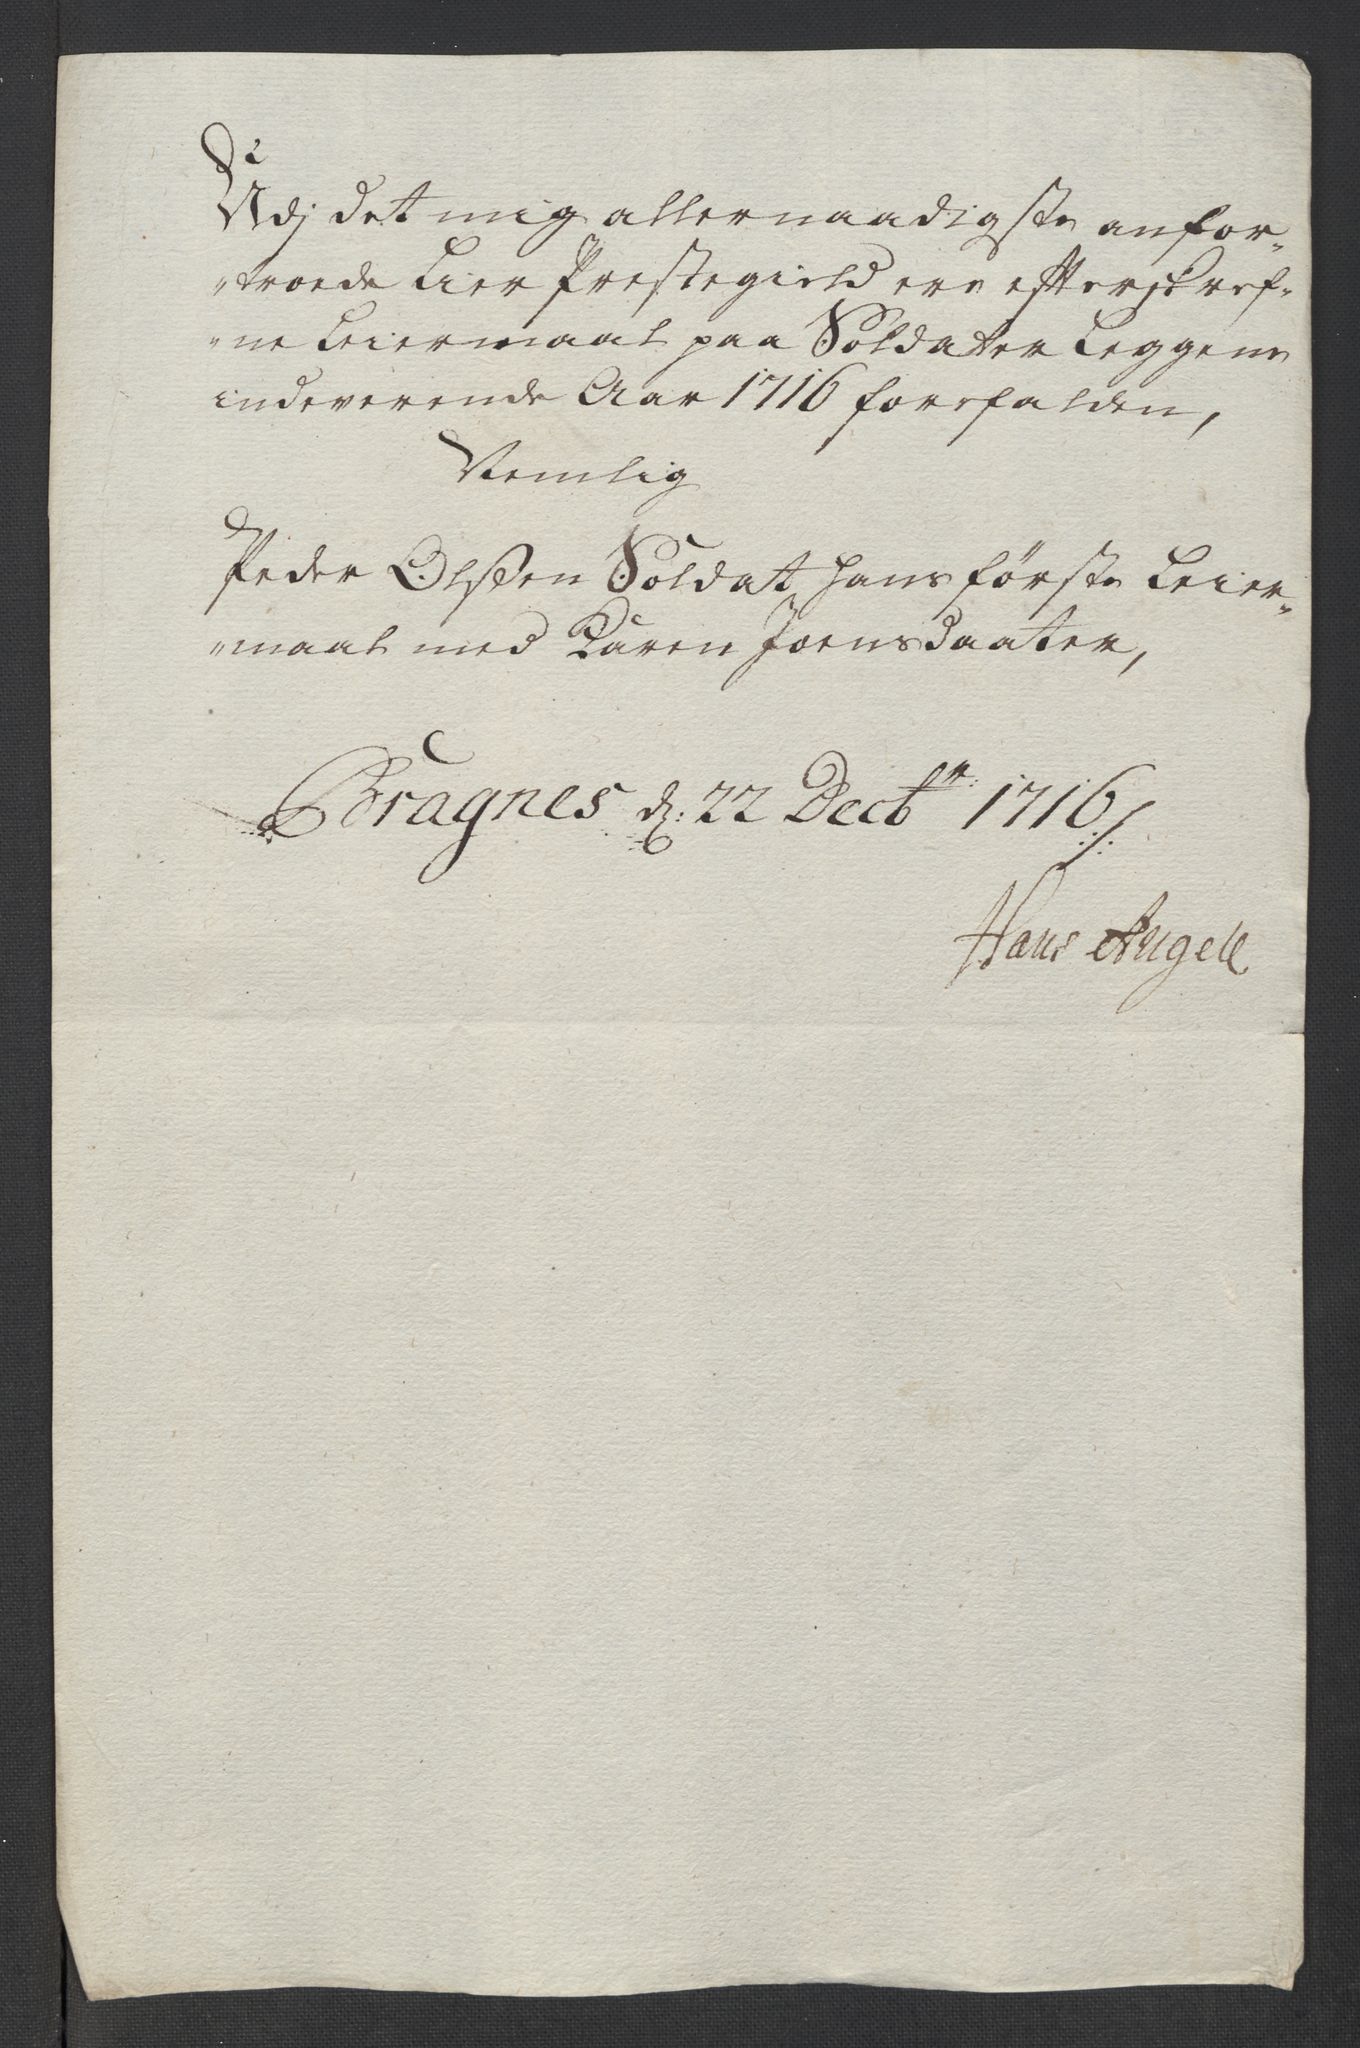 Udj det mig allernaadigste anfor-
troede Lier Prestegield ere efterskref-
ne Leiermaal paa Soldater Leggens
indeverende Aar 1716 forefalden,
Nemlig
Peder Olßen Soldat, hans første Leier-
maal med Karen Joensdaater,
Bragnes d: 22 Decbr: 1716/
Hans Angell